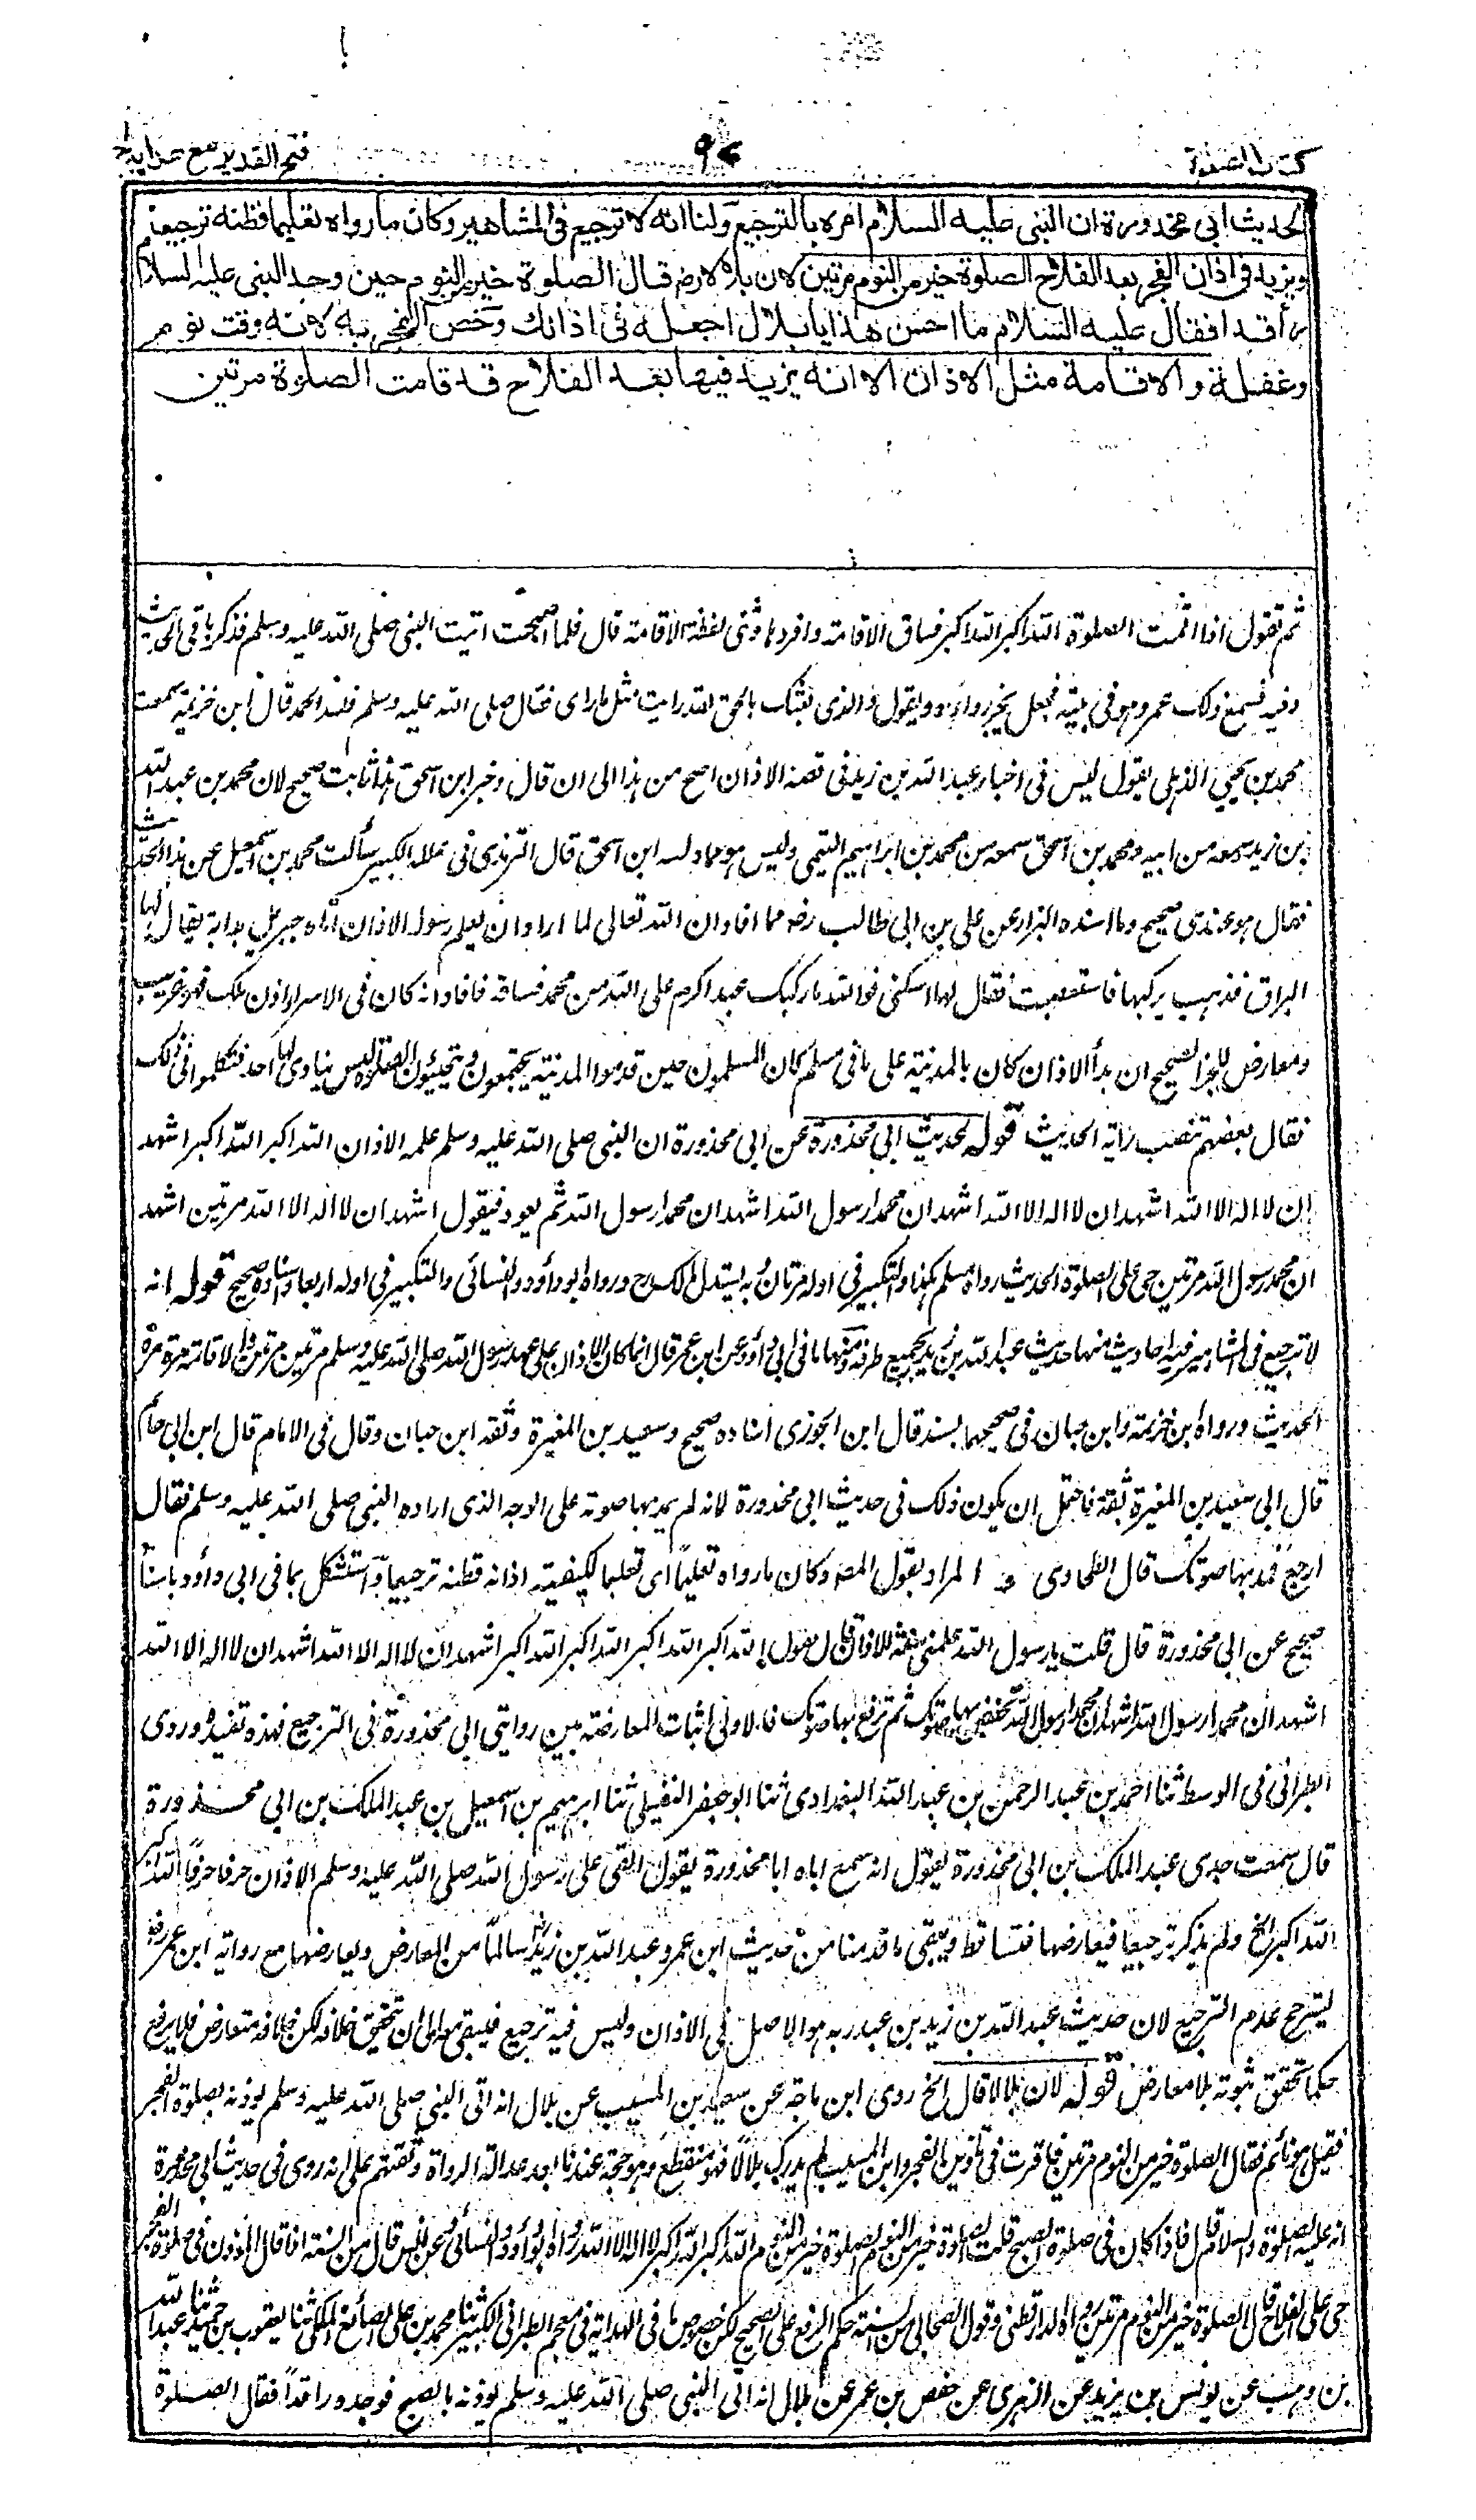 كتاب الصلوة
٩٧
فتح القدير مع هدايه ج ١
لحديث ابي محذورة ان النبي عليه السلام امره بالترجيع ولنا انه لا ترجيع في المشاهير وكان ما رواه تعليما فظنه ترجيعا
ويزيد في اذان الفجر بعد الفلاح الصلوة خير من النوم مرتين لان بلالا رض قال الصلوة خير من النوم حين وجد النبي عليه السلام
راقدا فقال عليه السلام ما احسن هذا يا بلال اجعله في اذانك وخص الفجر به لانه وقت نوم
وغفلة والاقامة مثل الاذان الا انه يزيد فيها بعد الفلاح قد قامت الصلوة مرتين
ثم تقول اذا اقمت الصلوة الله اكبر الله اكبر فساق الاقامة وافردها وثنى لفظة الاقامة قال فلما اصبحت اتيت النبي صلى الله عليه وسلم فذكر باقي الحديث
وفيه فسمع ذلك عمر وهو في بيته فجعل يجر رداءه ويقول والذي بعثك بالحق لقد رايت مثل ما راى فقال صلى الله عليه وسلم فلله الحمد قال ابن خزيمة سمعت
محمد بن يحيى الذهلي يقول ليس في اخبار عبد الله بن زيد في قصة الاذان اصح من هذا الى ان قال وخبر ابن اسحق هذا ثابت صحيح لان محمد بن عبد الله
بن زيد سمعه من ابيه ومحمد بن اسحق سمعه من محمد بن ابراهيم التيمي وليس هو مما دلسه ابن اسحق قال الترمذي في علله الكبير سألت محمد بن اسمعيل عن هذا الحديث
فقال هو عندي صحيح وما اسنده البزار عن علي بن ابي طالب رضه مما افاد ان الله تعالى لما اراد ان يعلم رسوله الاذان اتاه جبريل بدابة يقال لها
البراق فذهب يركبها فاستصعبت فقال لها اسكني فوالله ما ركبك عبد اكرم على الله من محمد فساقه فافاد انه كان في الاسراء اذن ملك فهو غريب
ومعارض للخبر الصحيح ان بدأ الاذان كان بالمدينة على ما في مسلم كان المسلمون حين قدموا المدينة يجتمعون ويتحينون الصلوة ليس ينادي لها احد فتكلموا في ذلك
فقال بعضهم ننصب راية الحديث قوله لحديث ابي محذورة عن ابي محذورة ان النبي صلى الله عليه وسلم علمه الاذان الله اكبر الله اكبر اشهد
ان لا اله الا الله اشهد ان لا اله الا الله اشهد ان محمدا رسول الله اشهد ان محمدا رسول الله ثم يعود فيقول اشهد ان لا اله الا الله مرتين اشهد
ان محمدا رسول الله مرتين حي على الصلوة الحديث رواه مسلم هكذا والتكبير في اوله مرتان وبه يستدل لمالك رح ورواه ابو داود والنسائي والتكبير في اوله اربعا واسناده صحيح قوله انه
لا ترجيع في المشاهير فيه احاديث منها حديث عبد الله بن زيد بجميع طرقه ومنها ما في ابي داود عن ابن عمر قال انما كان الاذان على عهد رسول الله صلى الله عليه وسلم مرتين مرتين والاقامة مرة مرة
الحديث ورواه ابن خزيمة وابن حبان في صحيحهما بسند قال ابن الجوزي اسناده صحيح وسعيد بن المغيرة وثقه ابن حبان وقال في الامام قال ابن ابي حاتم
قال ابي سعيد بن المغيرة ثقة فاحتمل ان يكون ذلك في حديث ابي محذورة لانه لم يمد بها صوته على الوجه الذي اراده النبي صلى الله عليه وسلم فقال
ارجع فمد بها صوتك قال الطحاوي المراد بقول المصه وكان ما رواه تعليما اى تعليما لكيفية اذانه فظنه ترجيعا واستشكل بما في ابي داود باسناد
صحيح عن ابي محذورة قال قلت يا رسول الله علمني سنة الاذان قال تقول الله اكبر الله اكبر الله اكبر الله اكبر اشهد ان لا اله الا الله اشهد ان لا اله الا الله
اشهد ان محمدا رسول الله اشهد ان محمدا رسول الله تخفض بها صوتك ثم ترفع بها صوتك فالاولى اثبات المعارضة بين روايتي ابي محذورة في الترجيع فهذه تفيده وروى
الطبراني في الوسط ثنا احمد بن عبد الرحمن بن عبد الله البغدادي ثنا ابو جعفر النفيلي ثنا ابرهيم بن اسمعيل بن عبد الملك بن ابي محذورة
قال سمعت جدي عبد الملك بن ابي محذورة يقول انه سمع اباه ابا محذورة يقول القى على رسول الله صلى الله عليه وسلم الاذان حرفا حرفا الله اكبر
الله اكبر الخ ولم يذكر ترجيعا فيعارضها فتساقط ويبقى ما قدمنا من حديث ابن عمر وعبد الله بن زيد سالما من المعارض ويعارضها مع رواية ابن عمر رض
ليترجح عدم الترجيع لان حديث عبد الله بن زيد بن عبد ربه هو الاصل في الاذان وليس فيه ترجيع فليبقى معه الى ان يتحقق خلافه لكن خلافه متعارض فلا يرفع
حكما تحقق ثبوته بلا معارض قوله لان بلالا قال الخ روى ابن ماجة عن سعيد بن المسيب عن بلال انه اتى النبي صلى الله عليه وسلم يوذنه بصلوة الفجر
فقيل هو نائم فقال الصلوة خير من النوم مرتين فاقرت في تاذين الفجر وابن المسيب لم يدرك بلالا فهو منقطع وهو حجة عندنا بعد عدالة الرواة وثقتهم على انه روى في حديث ابي محذورة
انه عليه الصلوة والسلام قال فاذا كان في صلوة الصبح قلت الصلوة خير من النوم الصلوة خير من النوم الله اكبر الله اكبر لا اله الا الله رواه ابو داود والنسائي وعن انس قال من السنة اذا قال المؤذن في صلوة الفجر
حي على الفلاح قال الصلوة خير من النوم مرتين رواه الدارقطني وقول الصحابي من السنة حكم الرفع على الصحيح لكن خصوص ما في الهداية في معجم الطبراني الكبير ثنا محمد بن علي الصائغ المكي ثنا يعقوب بن حميد ثنا عبد الله
بن وهب عن يونس بن يزيد عن الزهري عن حفص بن عمر عن بلال انه اتى النبي صلى الله عليه وسلم يوذنه بالصبح فوجده راقدا فقال الصلوة